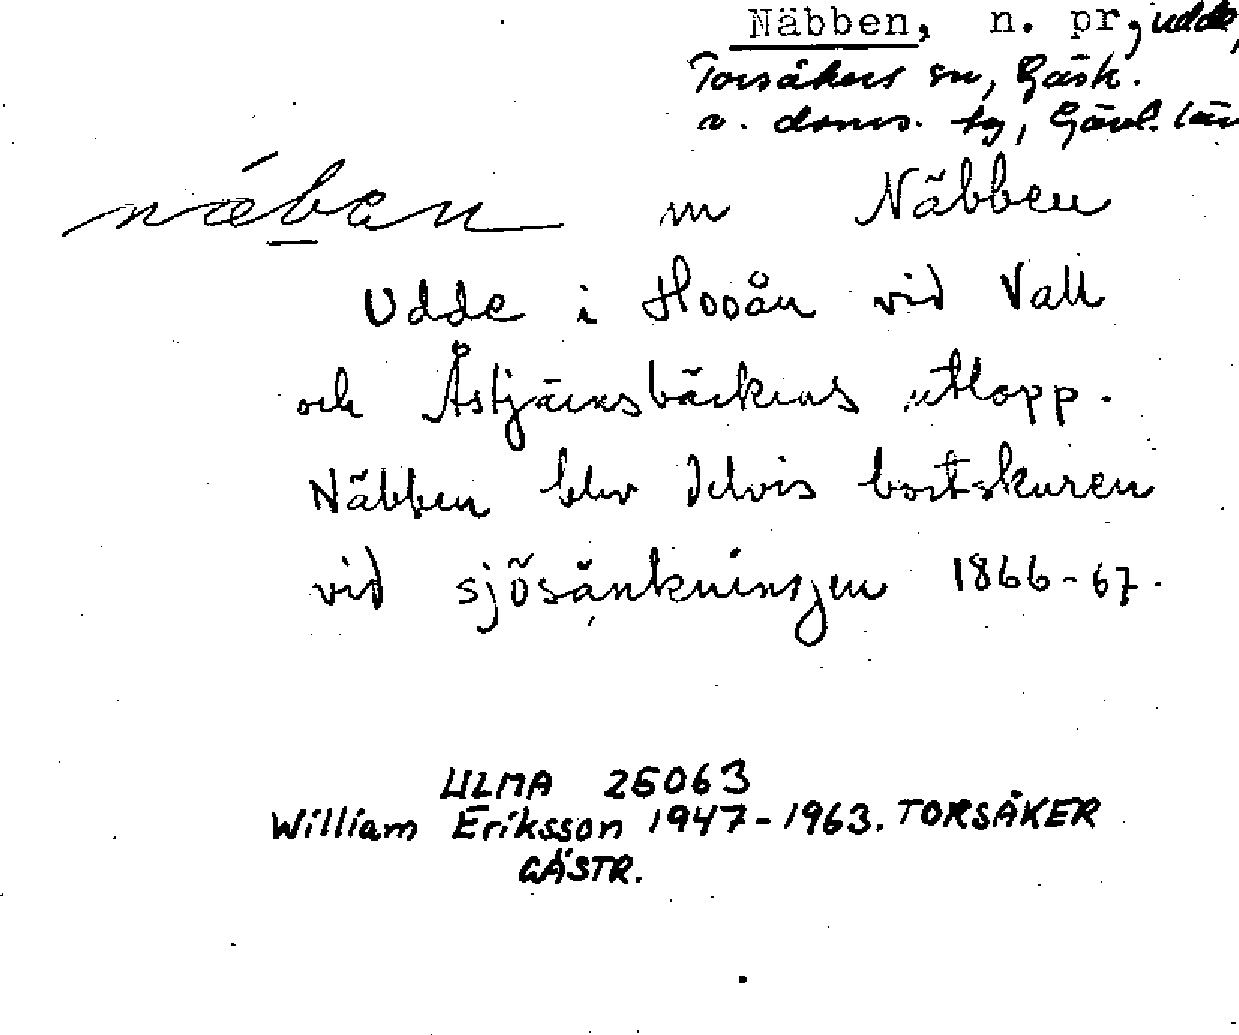 Näbben, n. pr, udde,
Torsåkers sn, Gästr.
v. doms. tg, Gävl. län
näben m Näbben
Udde i Hooån vid Vall
och Åstjärnsbäckens utlopp.
Näbben blev delvis bortskuren
vid sjösänkningen 1866-67.
ULMA 25063
William Eriksson 1947-1963. TORSÅKER
GÄSTR.